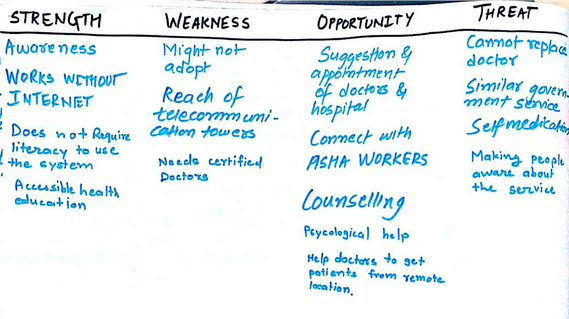 STRENGTH
Awareness
WORKS WITHOUT
INTERNET
Does not Require
literacy to use
the system
Accessible health
education
WEAKNESS
Might not
adopt
Reach of
telecommuni-
cation towers
Needs certified
Doctors
OPPORTUNITY
Suggestion &
appointment
of doctors &
hospital
Connect with
ASHA WORKERS
Counselling
Psycological help
Help doctors to get
patients from remote
location.
THREAT
Cannot replace
doctor
Similar govern-
ment service
Self medication
Making people
aware about
the service